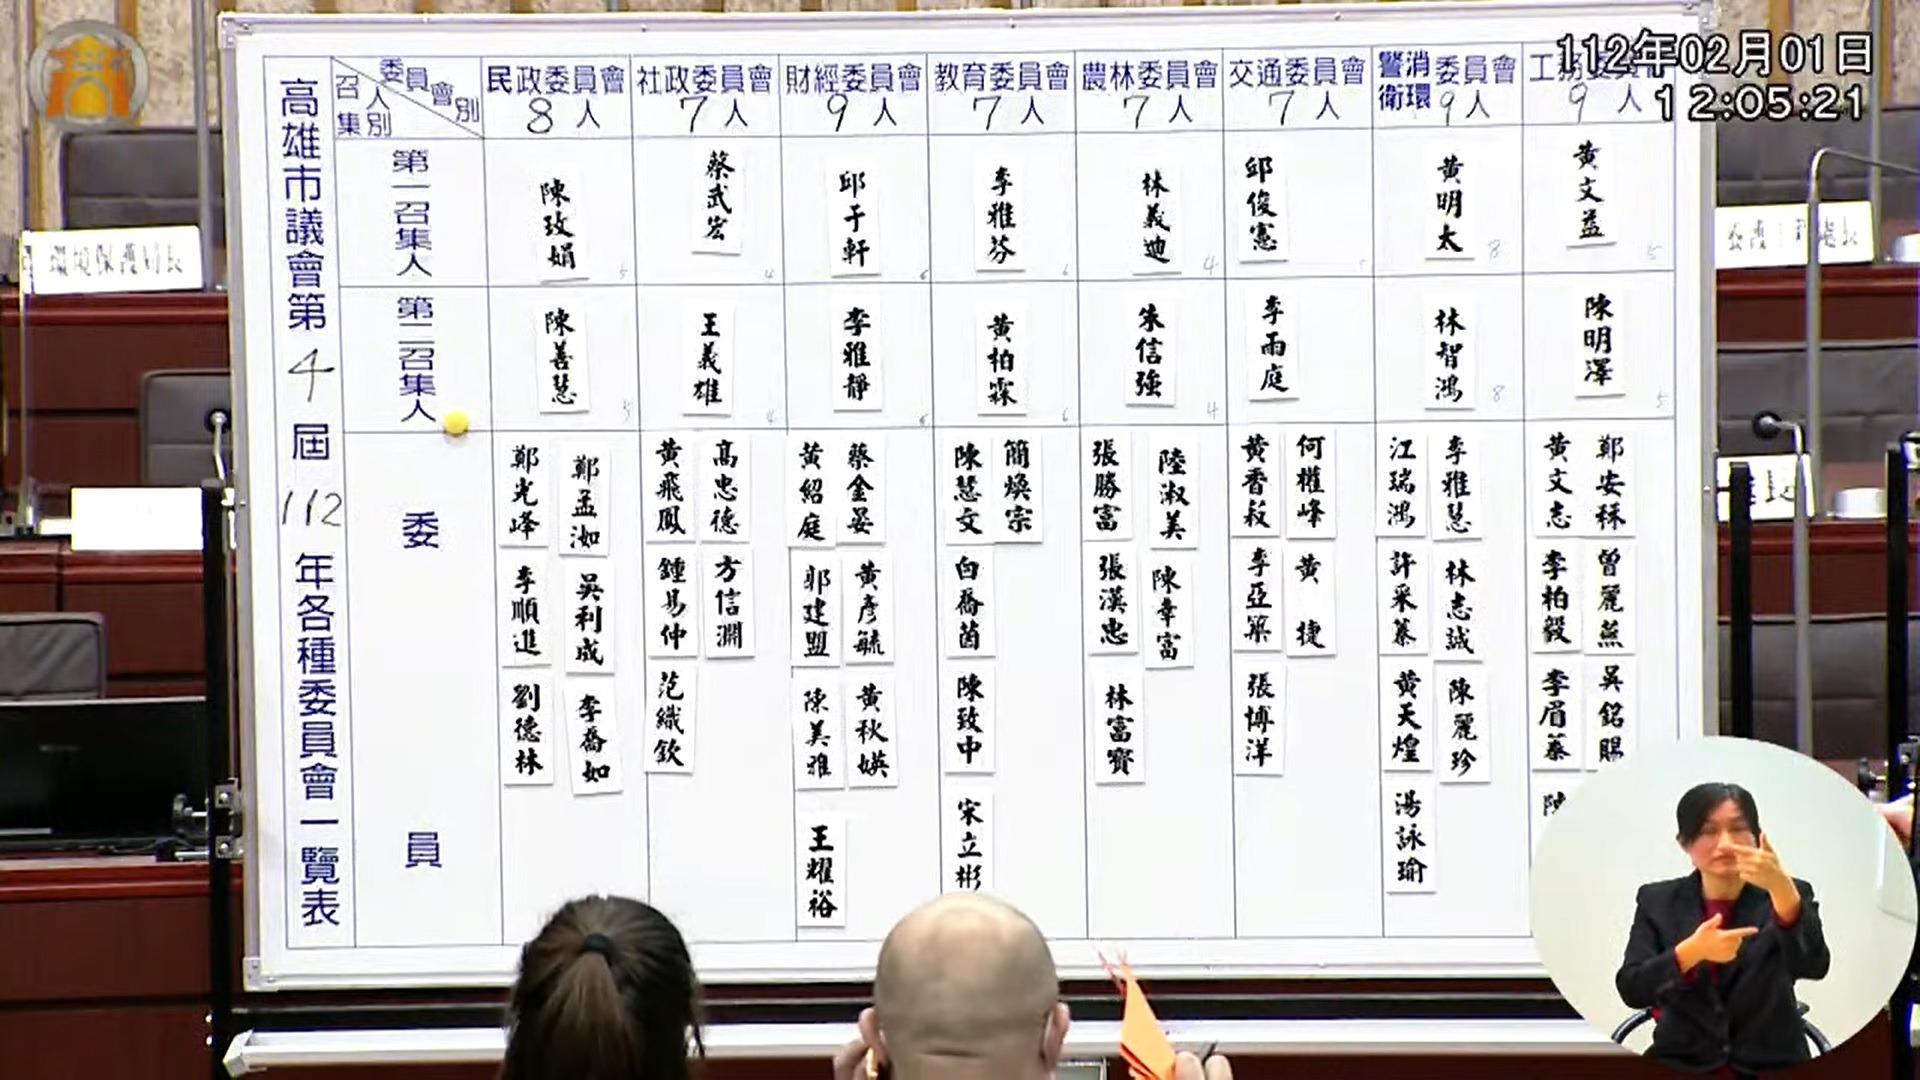 112年02月01日
12:05:21
高雄市議會第4屆112年各種委員會一覽表
委員會別
召集人別
民政委員會
8人
社政委員會
7人
財經委員會
9人
教育委員會
7人
農林委員會
7人
交通委員會
7人
警消衛環委員會
9人
9人
第一召集人
陳玫娟
5
蔡武宏
4
邱于軒
6
李雅芬
6
林義迪
4
邱俊憲
黃明太
8
黃文益
5
第二召集人
陳善慧
5
王義雄
4
李雅靜
6
黃柏霖
6
朱信強
4
李雨庭
林智鴻
8
陳明澤
5
委員
鄭光峰
鄭孟洳
李順進
吳利成
劉德林
李喬如
黃飛鳳
高忠德
鍾易仲
方信淵
范織欽
黃紹庭
蔡金晏
郭建盟
黃彥毓
陳美雅
黃秋媖
王耀裕
陳慧文
簡煥宗
白喬茵
陳致中
宋立彬
張勝富
陸淑美
張漢忠
陳幸富
林富寶
黃香菽
何權峰
李亞築
黃捷
張博洋
江瑞鴻
李雅慧
許采蓁
林志誠
黃天煌
陳麗珍
湯詠瑜
黃文志
鄭安秝
李柏毅
曾麗燕
李眉蓁
吳銘賜
環境保護局長